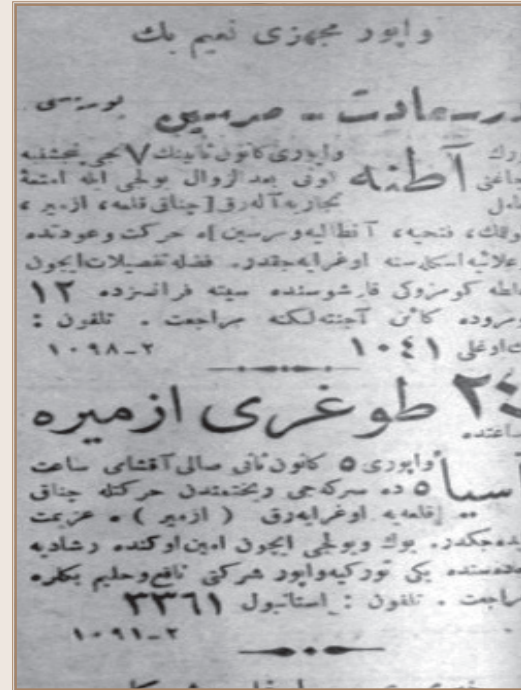 واپور مجهزی نعیم بك
درسعادت ـ مرسین پوسته‌سی
آطنه واپوری كانون ثانینك ٧ نجی پنجشنبه
كونی بعدالزوال یولجی ایله امتعهٔ
تجاریه آله‌رق [ چناق قلعه، ازمیر،
فتحیه، آنطالیه و مرسین ]ه حركت و عودتده
علائیه اسكله‌سنه اوغرایه‌جقدر. فضله تفصیلات ایچون
غلطه كومروكی قارشوسنده سیته فرانسزده ١٢
نومروده كائن آجنته‌لكنه مراجعت . تلفون :
بك اوغلی ١٠٤١
١٠٩٨-٢
٢٤ ساعتده طوغری ازمیره
آسیا واپوری ٥ كانون ثانی صالی آقشامی ساعت
٥ ده سركه‌جی ریختمندن حركتله چناق
قلعه‌یه اوغرایه‌رق ( ازمیر ) ه عزیمت
ایده‌جكدر. یوك و یولجی ایچون امین اوكنده رشادیه
جاده‌سنده یكی توركیه واپور شركتی نافع و حلیم بكلره
مراجعت . تلفون : استانبول ٣٣٦١
١٠٩١-٢